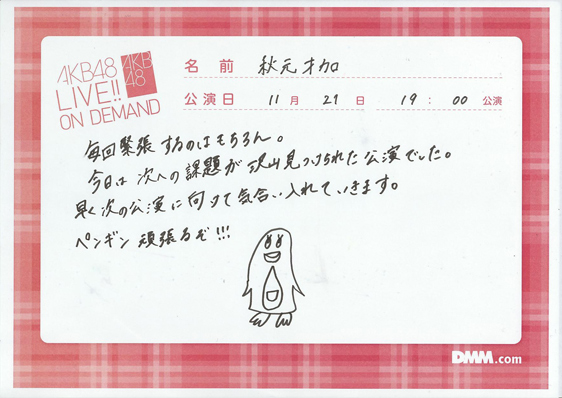 AKB48
LIVE!!
ON DEMAND
AKB
48
名 前 秋元才加
公演日 11月 21日 19:00 公演
毎回緊張するのはもちろん。
今日は次への課題が沢山見つけられた公演でした。
早く次の公演に向けて気合い入れていきます。
ペンギン頑張るぞ!!!
DMM.com